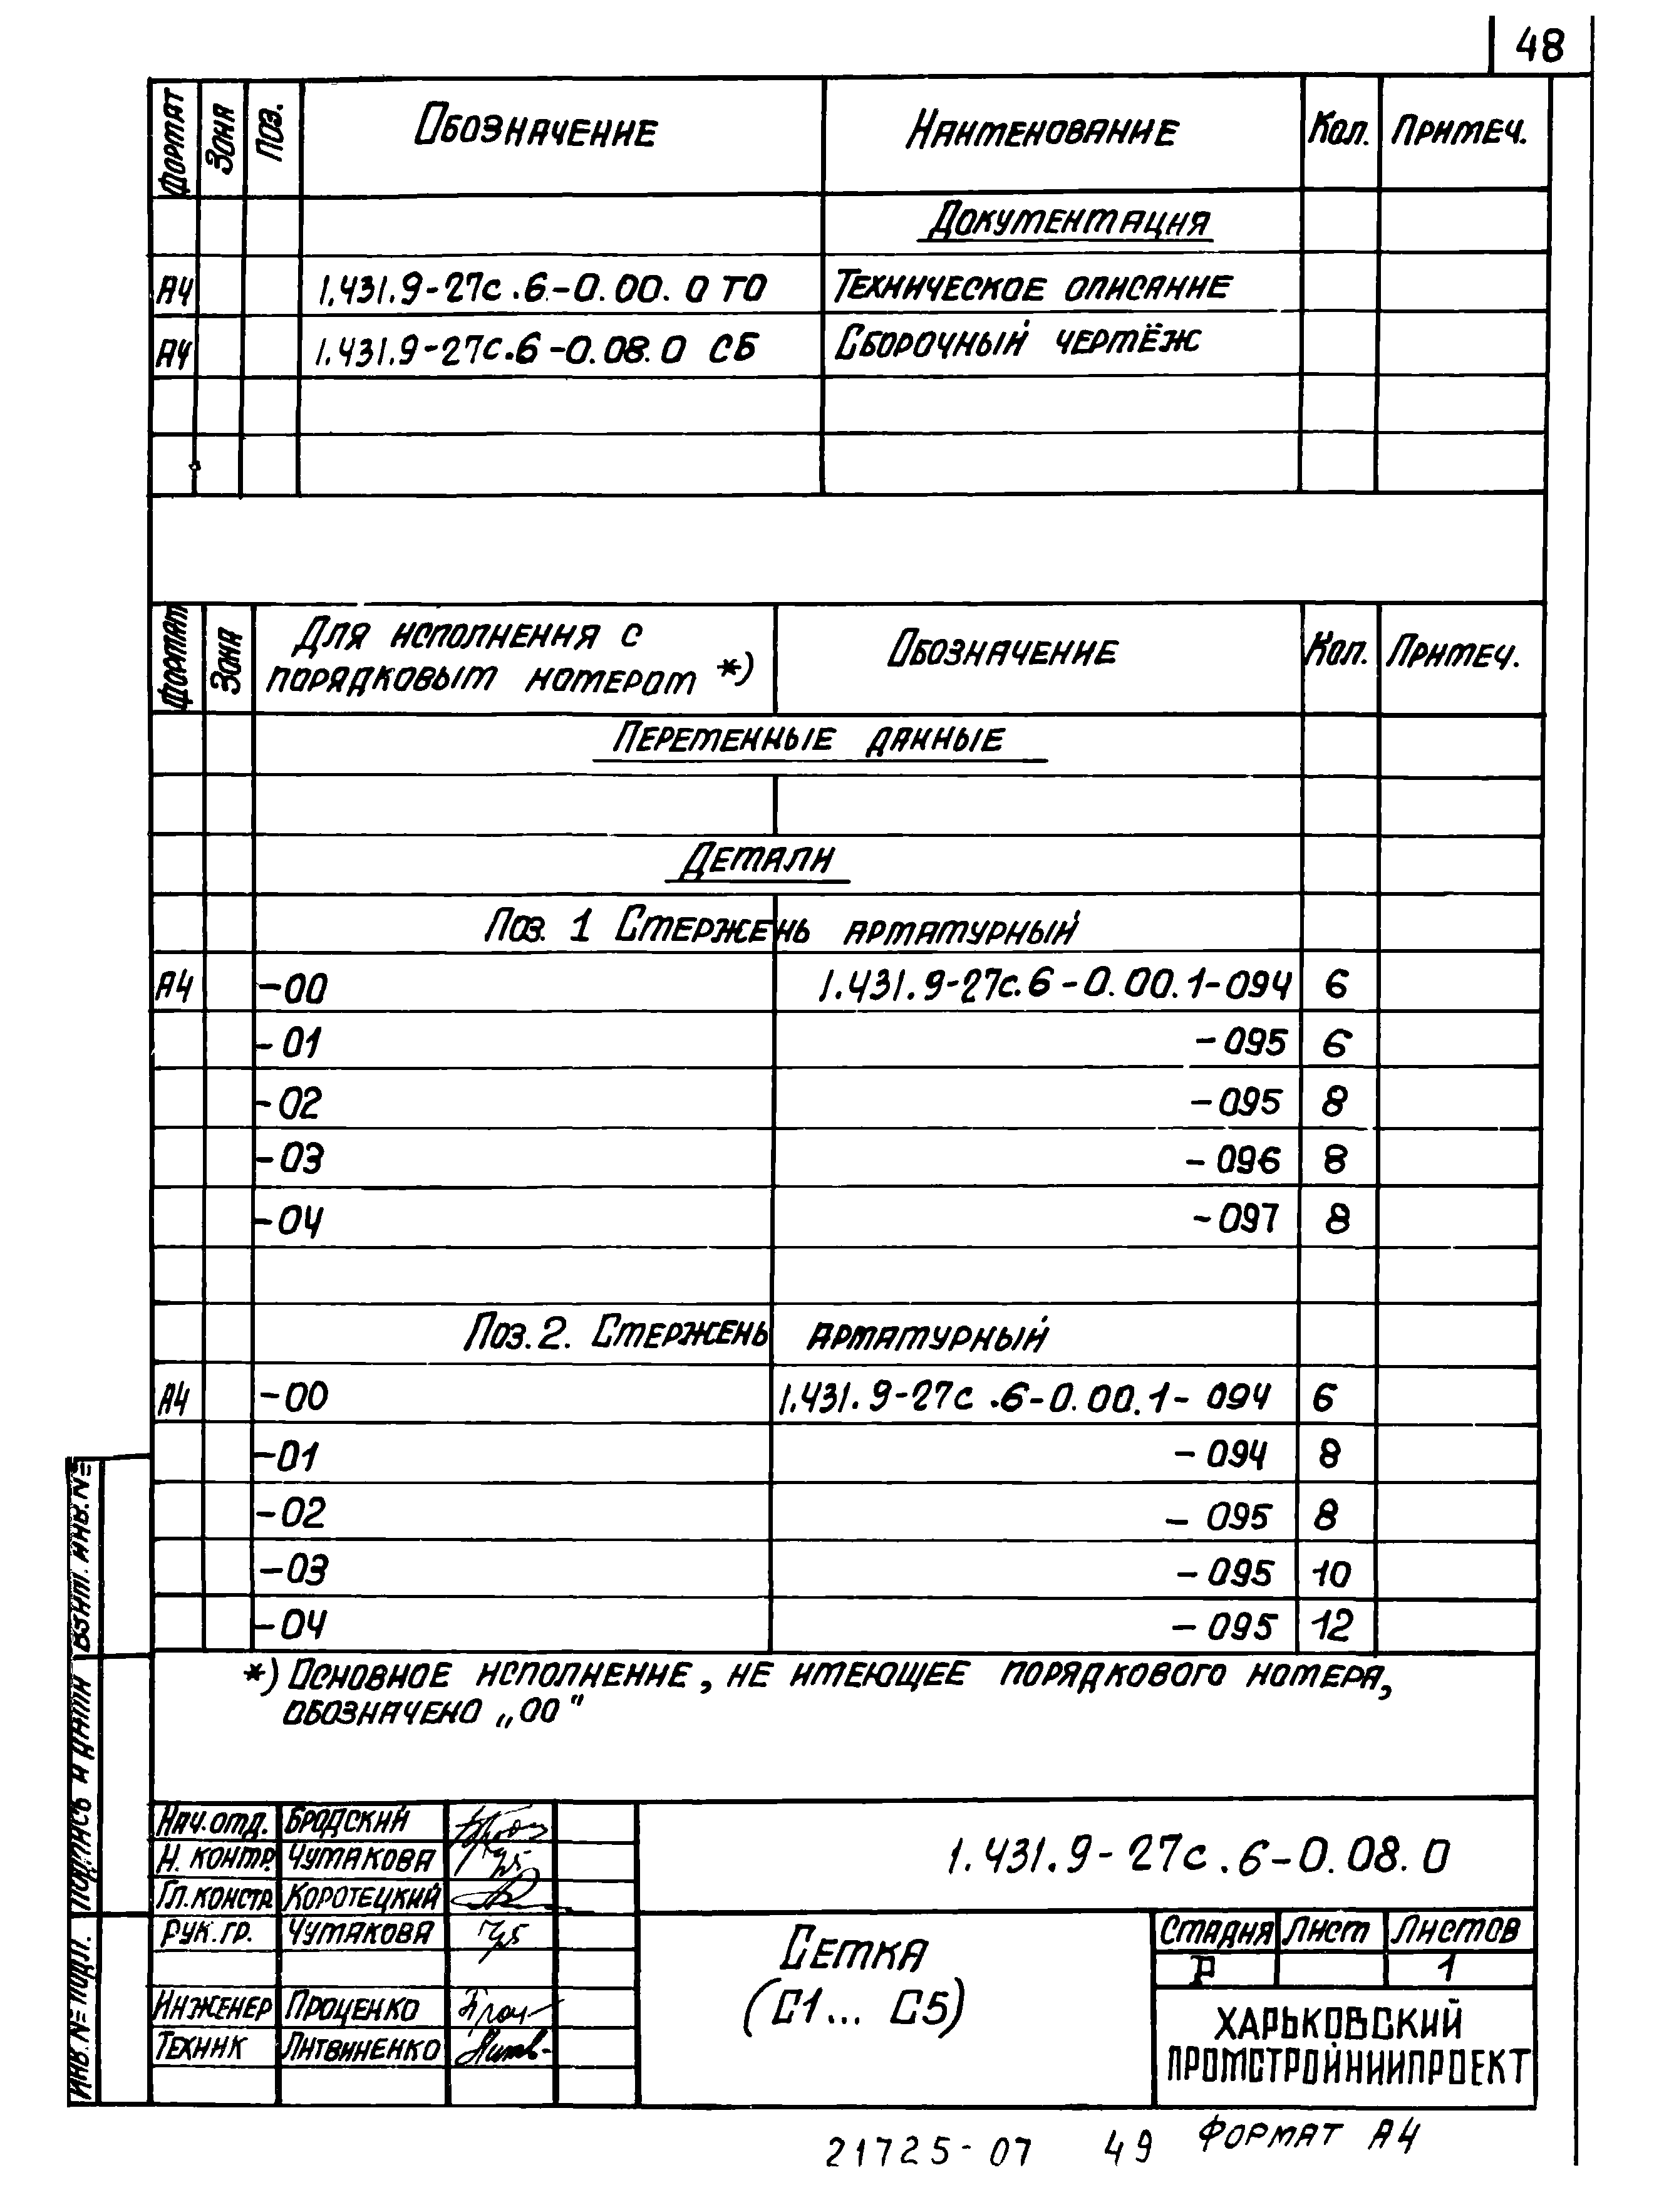 48
Формат Зона Поз. Обозначение Наименование Кол. Примеч.
Документация
А4 1.431.9-27с.6-0.00.0 ТО Техническое описание
А4 1.431.9-27с.6-0.08.0 СБ Сборочный чертёж
Формат Зона Для исполнения с порядковым номером *) Обозначение Кол. Примеч.
Переменные данные
Детали
Поз. 1 Стержень арматурный
А4 -00 1.431.9-27с.6-0.00.1-094 6
-01 -095 6
-02 -095 8
-03 -096 8
-04 -097 8
Поз. 2. Стержень арматурный
А4 -00 1.431.9-27с.6-0.00.1-094 6
-01 -094 8
-02 -095 8
-03 -095 10
-04 -095 12
*) Основное исполнение, не имеющее порядкового номера,
обозначено „00"
Инв.№ подл. Подпись и дата Взам. инв.№
Нач.отд. Бродский
Н. контр. Чумакова
Гл.констр. Коротецкий
Рук.гр. Чумакова
Инженер Проценко
Техник Литвиненко
1.431.9-27с.6-0.08.0
Сетка
(С1... С5)
Стадия Лист Листов
Р 1
ХАРЬКОВСКИЙ
ПРОМСТРОЙНИИПРОЕКТ
21725-07 49 Формат А4